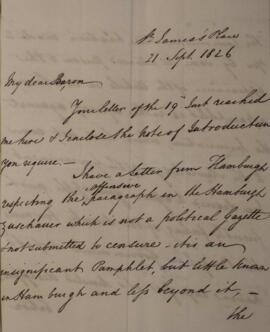 St. James's Place
21 Sept. 1826
My dear Baron
Your letter of the 19th Inst reached
me here & I enclose the note of Introduction
you require. —
I have a letter from Hamburgh
offensive
respecting the paragraph in the Hamburgh
Zuschauer which is not a political Gazette
& not submitted to censure. it is an
insignificant Pamphlet, but little known
in Hamburgh and less beyond it, —
the